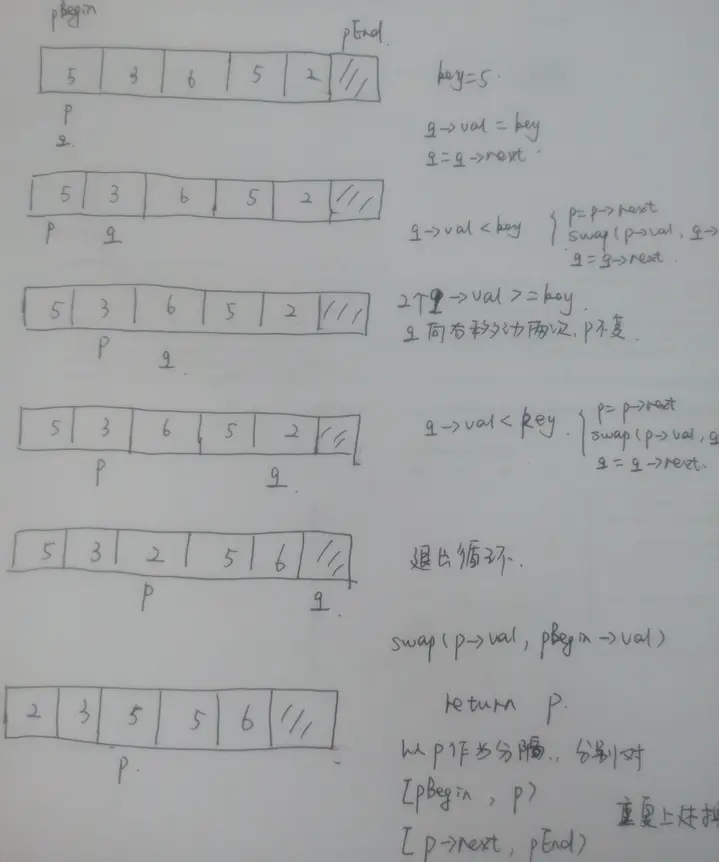 pBegin
pEnd.
5 3 6 5 2
p
q.
key=5.
q->val = key
q=q->next.
5 3 6 5 2
p q
q->val < key
p=p->next
swap(p->val, q->
q=q->next.
5 3 6 5 2
p q.
2个q->val >= key.
q向右移动两次, p不变.
5 3 6 5 2
p q.
q->val < key.
p= p->next
swap(p->val, q
q = q->next.
5 3 2 5 6
p q.
退出循环.
swap(p->val, pBegin->val)
return p.
2 3 5 5 6
p.
以p作为分隔.. 分别对
[pBegin, p)
[p->next, pEnd)
重复上述